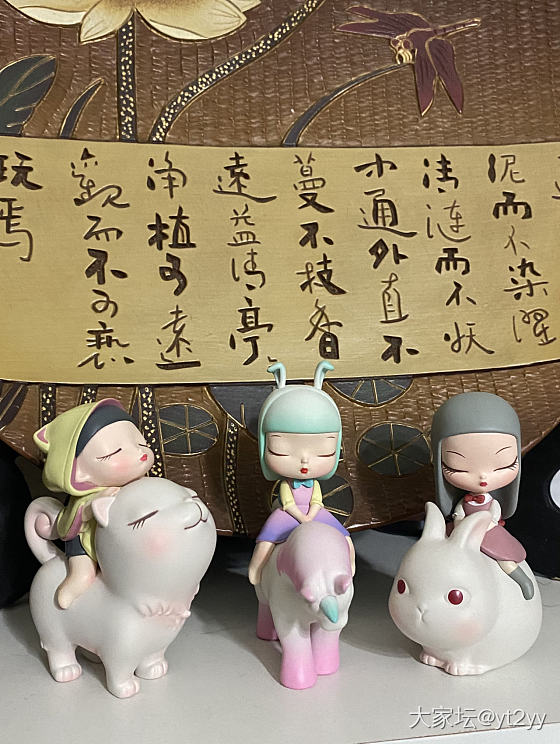 泥而不染濯
清涟而不妖
中通外直不
蔓不枝香
遠益清亭
净植可遠
觀而不可亵
玩焉
大家坛@yt2yy